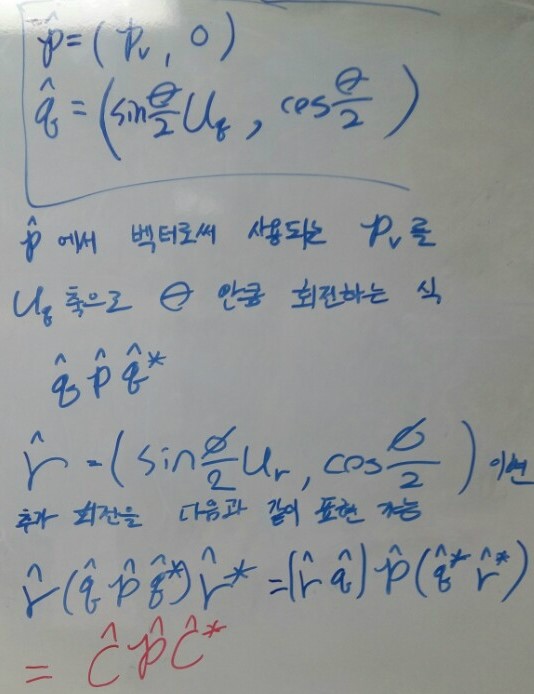 p̂ = (Pᵥ, 0)
q̂ = (sin θ/2 U_q, cos θ/2)
p̂ 에서 벡터로써 사용되는 Pᵥ를
U_q 축으로 θ 만큼 회전하는 식
q̂ p̂ q̂*
r̂ = (sin ø/2 Uᵣ, cos ø/2) 이면
추가 회전을 다음과 같이 표현 가능
r̂(q̂ p̂ q̂*)r̂* = (r̂ q̂) p̂ (q̂* r̂*)
= ĉ p̂ ĉ*